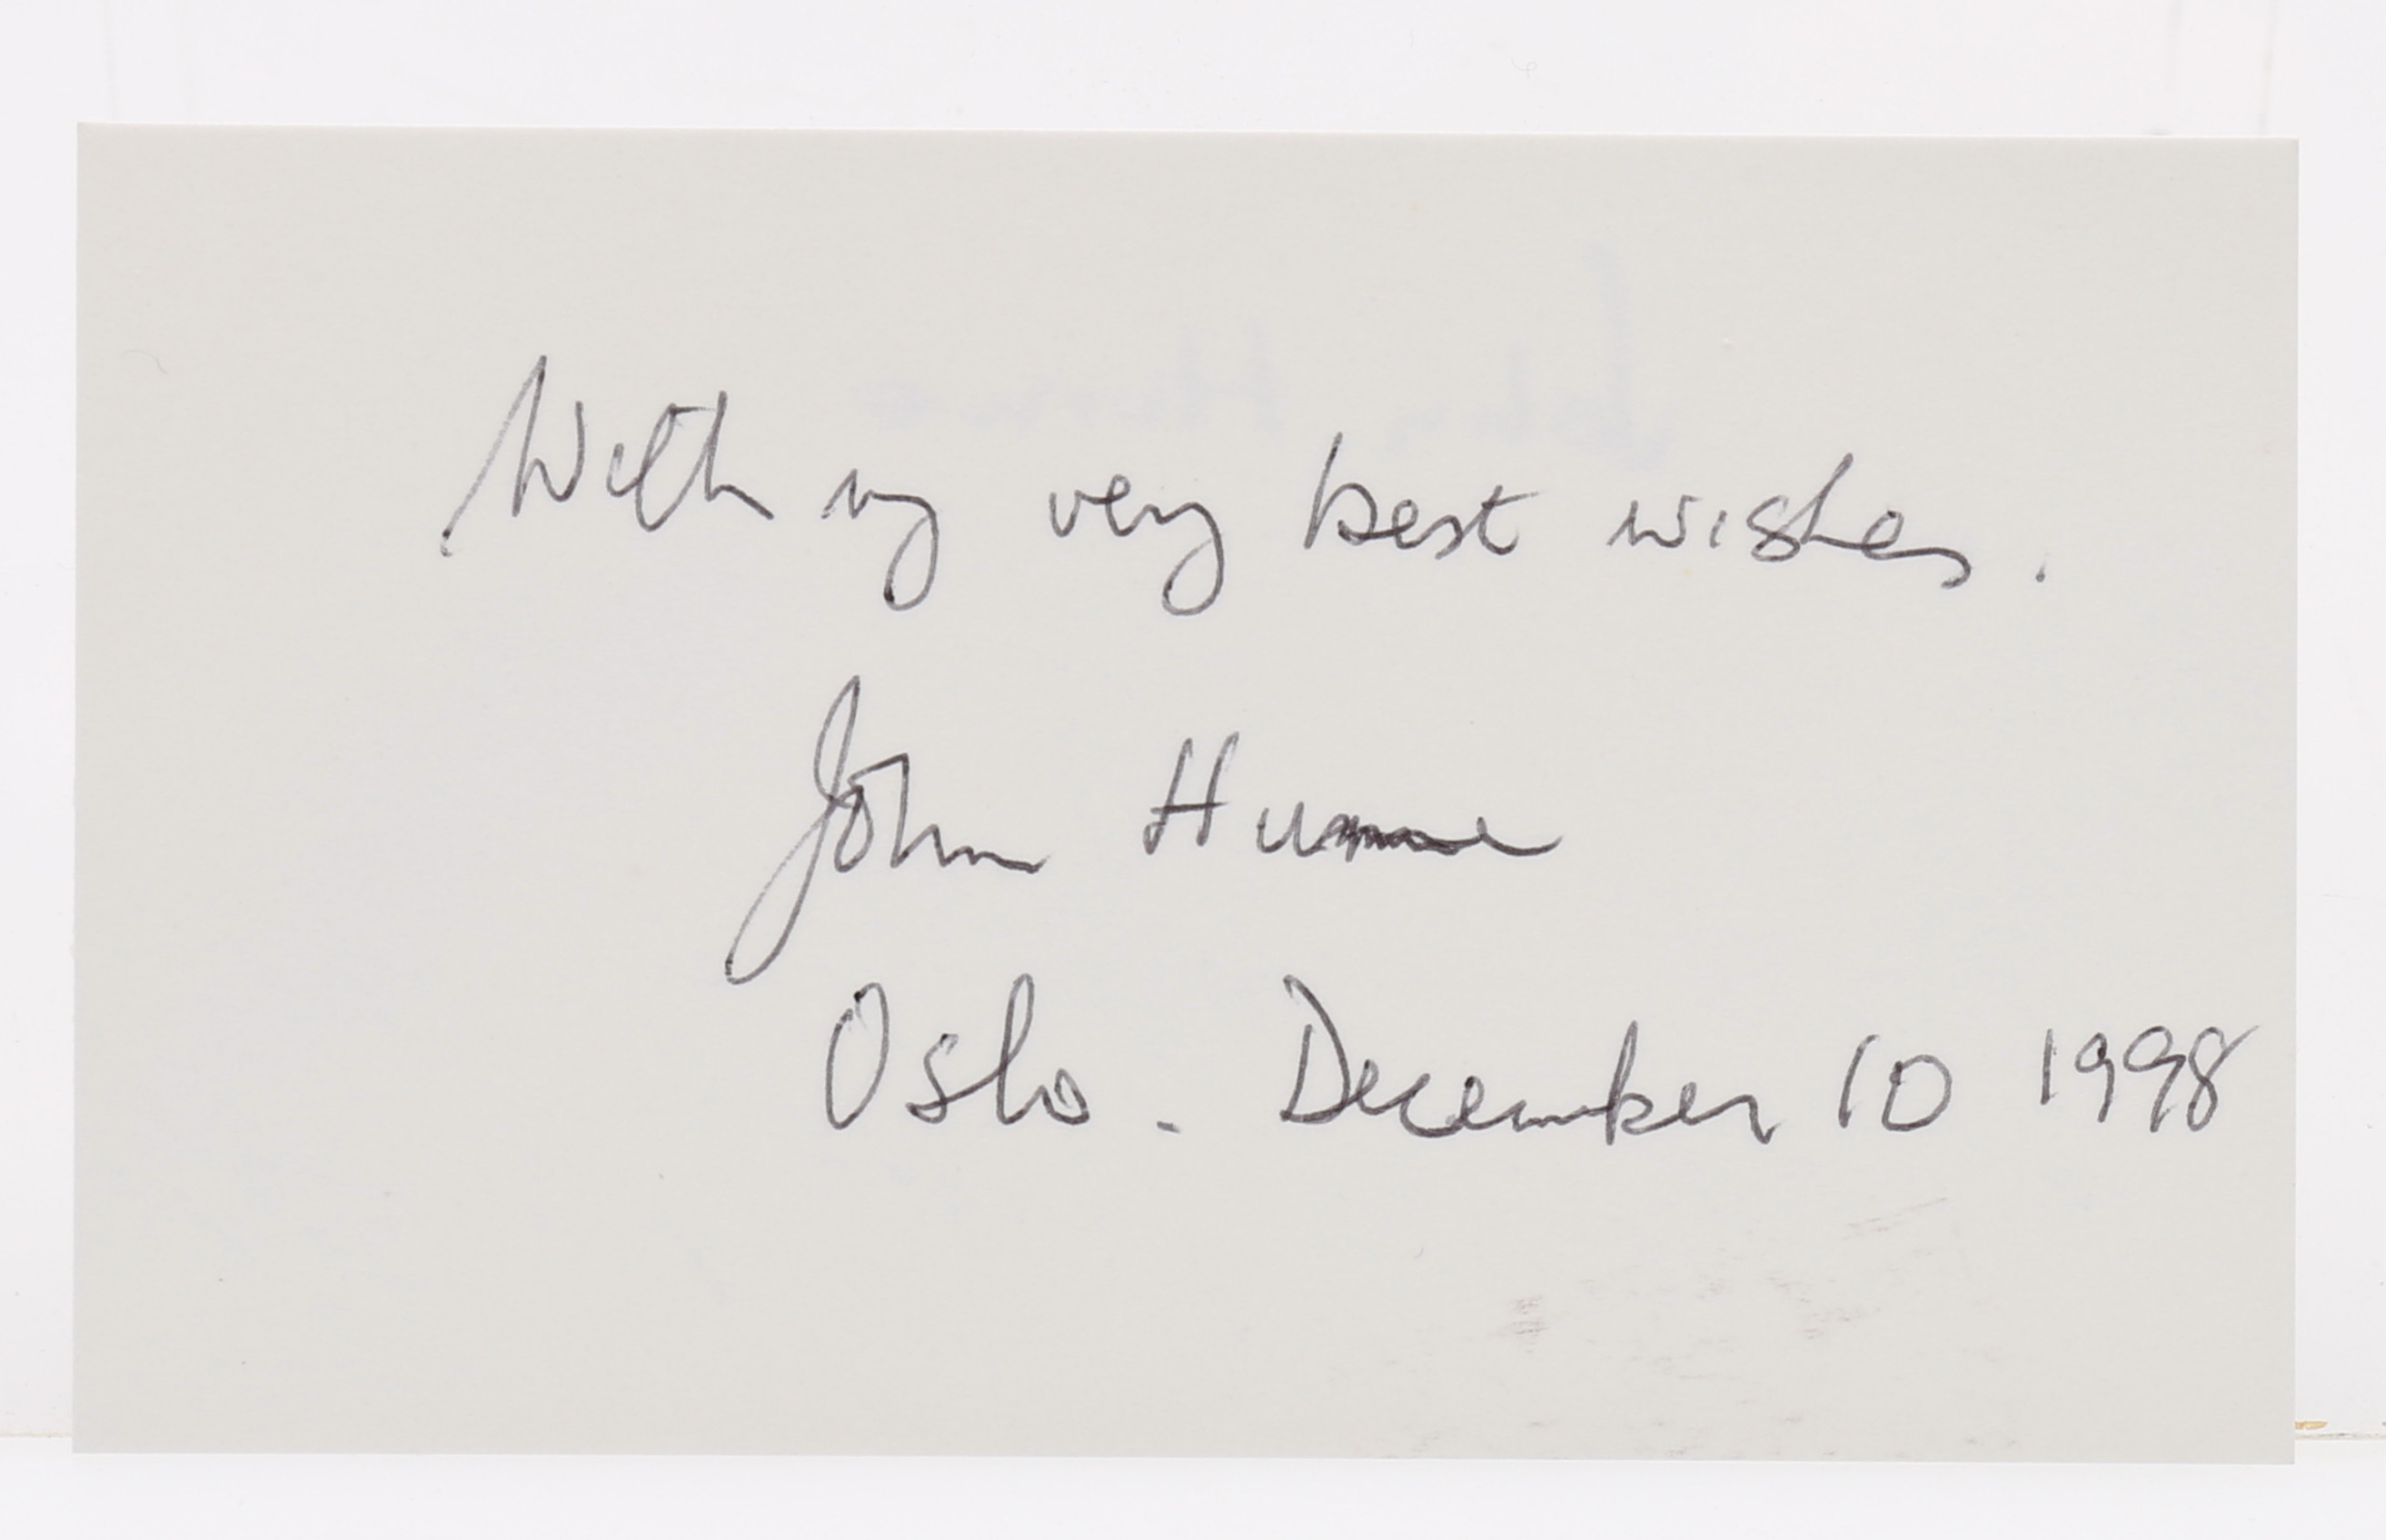 With my very best wishes.
John Hume
Oslo. December 10 1998